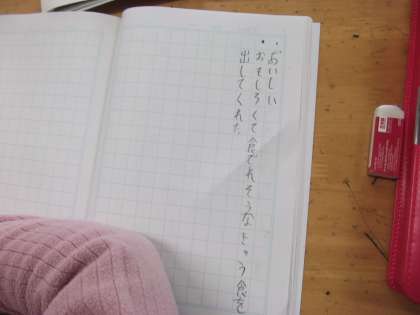 ・おいしい
・おもしろくて食てれそうなきゅう食を
出してくれた